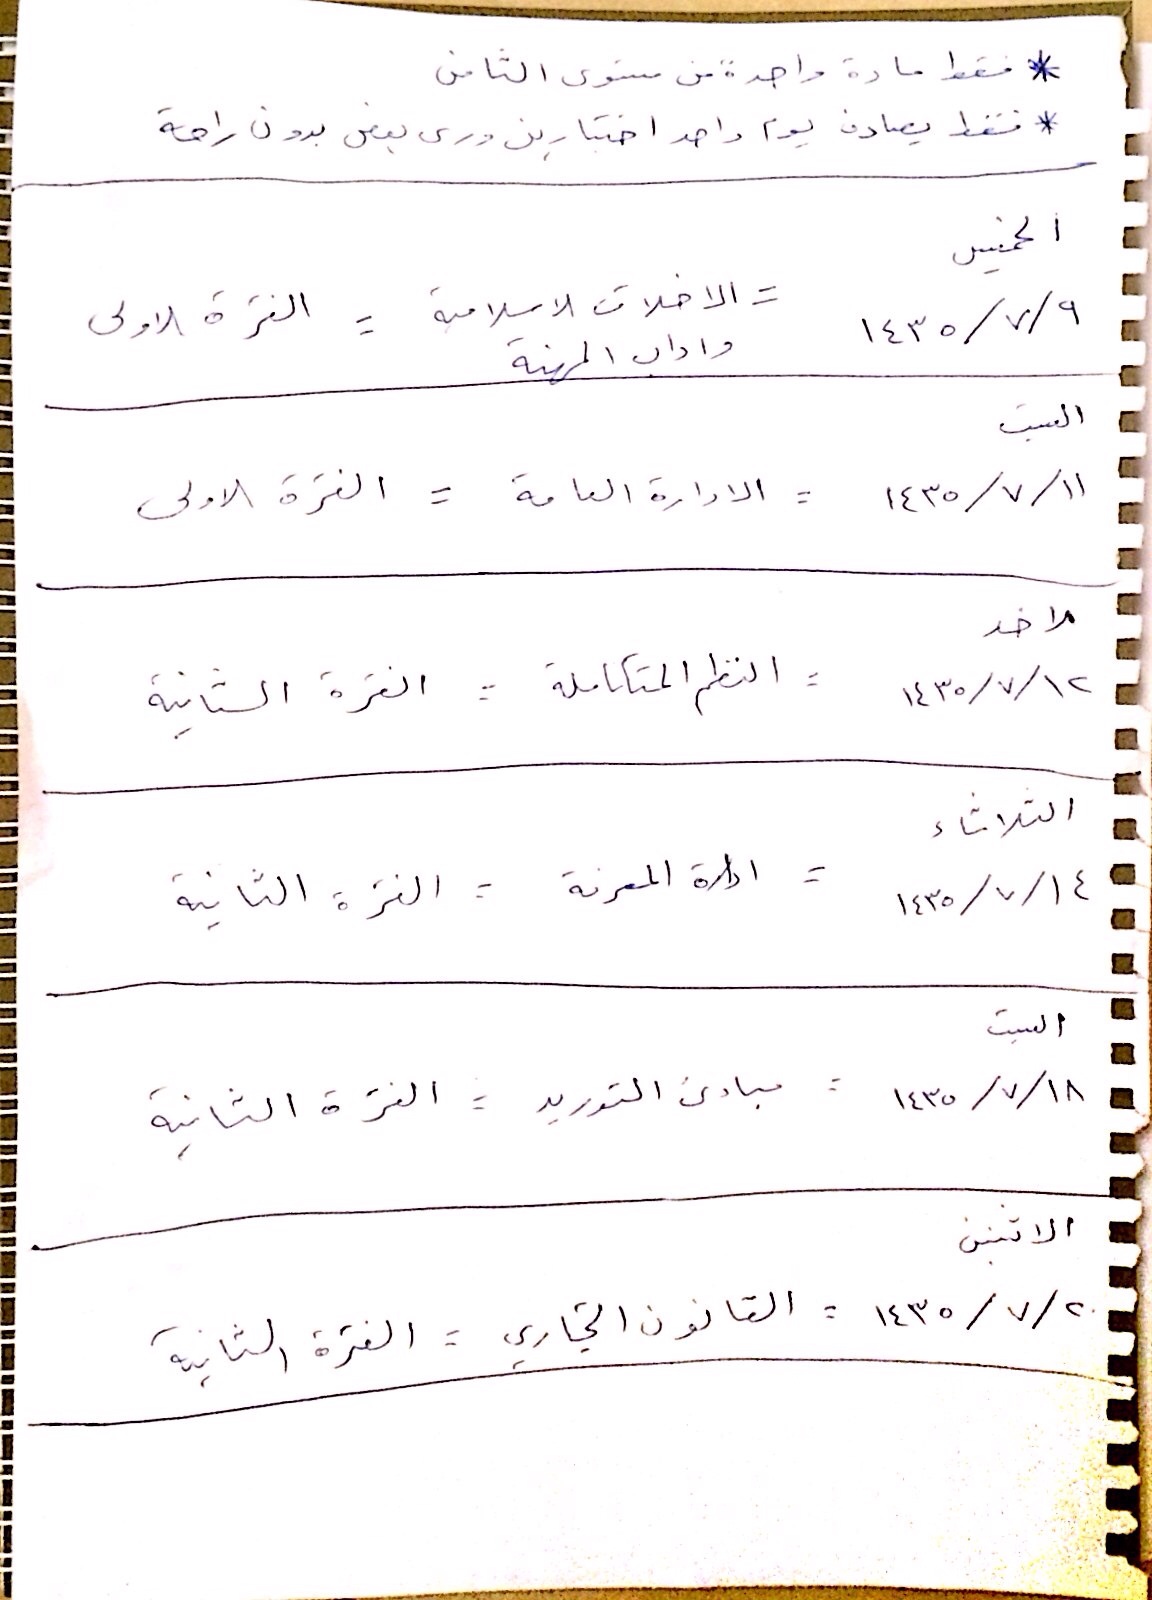 * فقط مادة واحدة من مستوى الثامن
* فقط يصادف يوم واحد اختبارين ورى بعض بدون راحة
الخميس
١٤٣٥/٧/٩ = الاخلاق الاسلامية = الفترة الاولى
واداب المهنة
السبت
١٤٣٥/٧/١١ = الادارة العامة = الفترة الاولى
الاحد
١٤٣٥/٧/١٢ = النظم المتكاملة = الفترة الثانية
الثلاثاء
١٤٣٥/٧/١٤ = ادارة المعرفة = الفترة الثانية
السبت
١٤٣٥/٧/١٨ = مبادئ التوريد = الفترة الثانية
الاثنين
١٤٣٥/٧/٢٠ = القانون التجاري = الفترة الثانية